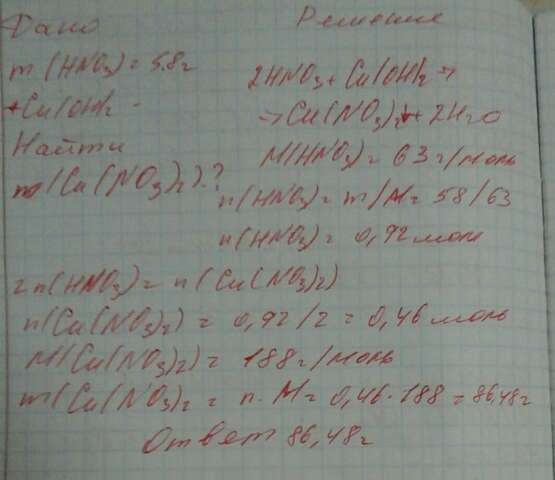 Дано
Решение
m(HNO3) = 58г
+Cu(OH)2 -
Найти
m(Cu(NO3)2).?
2HNO3 + Cu(OH)2 →
→ Cu(NO3)2 + 2H2O
M(HNO3) = 63 г/моль
n(HNO3) = m/M = 58/63
n(HNO3) = 0,92 моль
2n(HNO3) = n(Cu(NO3)2)
n(Cu(NO3)2) = 0,92/2 = 0,46 моль
M(Cu(NO3)2) = 188 г/моль
m(Cu(NO3)2 = n·M = 0,46·188 = 86,48г
Ответ 86,48г